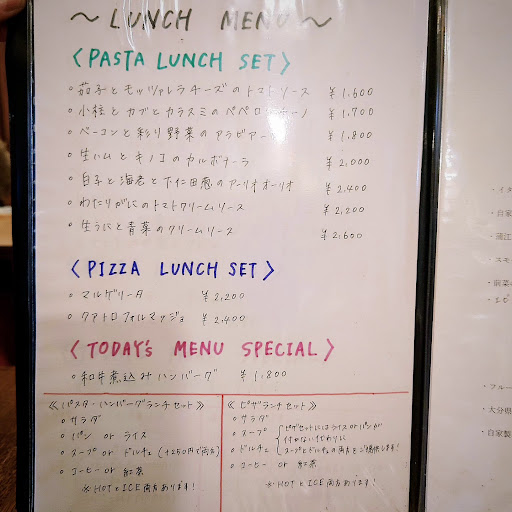 ～ LUNCH MENU ～
〈PASTA LUNCH SET〉
○ 茄子とモッツァレラチーズのトマトソース ¥1,600
○ 小柱とカブとカラスミのペペロンチーノ ¥1,700
○ ベーコンと彩り野菜のアラビアータ ¥1,800
○ 生ハムとキノコのカルボナーラ ¥2,000
○ 白子と海老と下仁田葱のアーリオオーリオ ¥2,400
○ わたりがにのトマトクリームソース ¥2,200
○ 生うにと青菜のクリームソース ¥2,600
〈PIZZA LUNCH SET〉
○ マルゲリータ ¥2,200
○ クアトロフォルマッジョ ¥2,400
〈TODAY's MENU SPECIAL〉
○ 和牛煮込みハンバーグ ¥1,800
《パスタ・ハンバーグランチセット》
○ サラダ
○ パン or ライス
○ スープ or ドルチェ (+250円で両方)
○ コーヒー or 紅茶
※HOTとICE両方あります!
《ピザランチセット》
○ サラダ
○ スープ
○ ドルチェ
ピザセットにはライスorパンが
付かない代わりに
スープとドルチェの両方をご提供します!
○ コーヒー or 紅茶
※HOTとICE両方あります!
・イタ
・自家
・蒲江
・スモ
・前菜の
・フルー
・大分県
・自家製